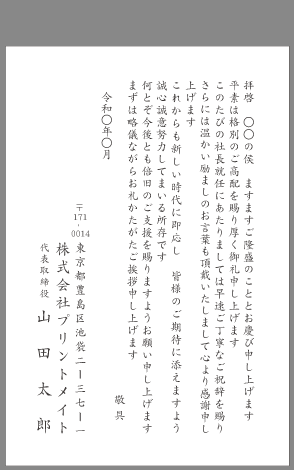 拝啓　〇〇の候　ますますご隆盛のこととお慶び申し上げます
平素は格別のご高配を賜り厚く御礼申し上げます
このたびの社長就任にあたりましては早速ご丁寧なご祝辞を賜り
さらには温かい励ましのお言葉も頂戴いたしまして心より感謝申し
上げます
これからも新しい時代に即応し　皆様のご期待に添えますよう
誠心誠意努力してまいる所存です
何とぞ今後とも倍旧のご支援を賜りますようお願い申し上げます
まずは略儀ながらお礼かたがたご挨拶申し上げます
敬具
令和〇年〇月
〒171-0014
東京都豊島区池袋二ー三七ー一
株式会社プリントメイト
代表取締役　山田太郎